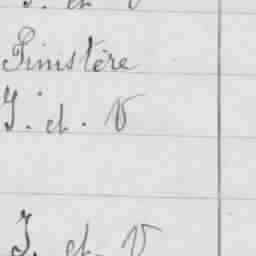 I. et V
Finistère
I. et. V
I. et V